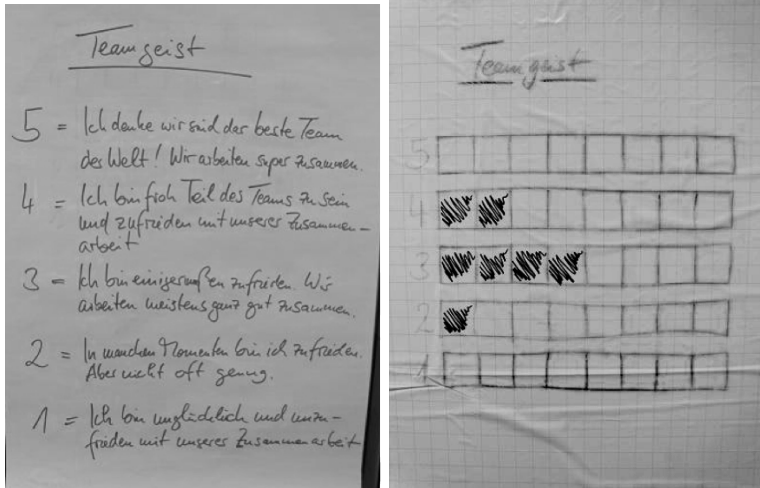 Teamgeist
5 = Ich denke wir sind das beste Team
des Welt! Wir arbeiten super zusammen.
4 = Ich bin froh Teil des Teams zu sein
und zufrieden mit unserer Zusammen-
arbeit
3 = Ich bin einigermaßen zufrieden. Wir
arbeiten meistens ganz gut zusammen.
2 = In manchen Momenten bin ich zufrieden.
Aber nicht oft genug.
1 = Ich bin unglücklich und unzu-
frieden mit unserer Zusammenarbeit
Teamgeist
5
4
3
2
1